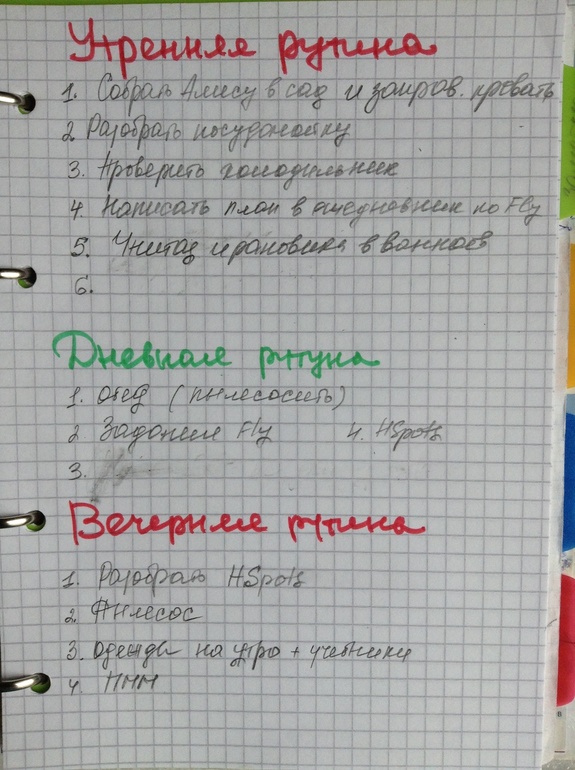 Утренняя рутина
1. Собрать Алису в сад и заправ. кровать
2 Разобрать посудомойку
3. Проверить холодильник
4. Написать план в ежедневник по Fly
5. Унитаз и раковина в ванной
6.
Дневная рутина
1. обед (пылесосить)
2. Задание Fly 4. HSpots
3.
Вечерняя рутина
1. Разобрать HSpots
2. Пылесос
3. одежда на утро + учебники
4. ППП